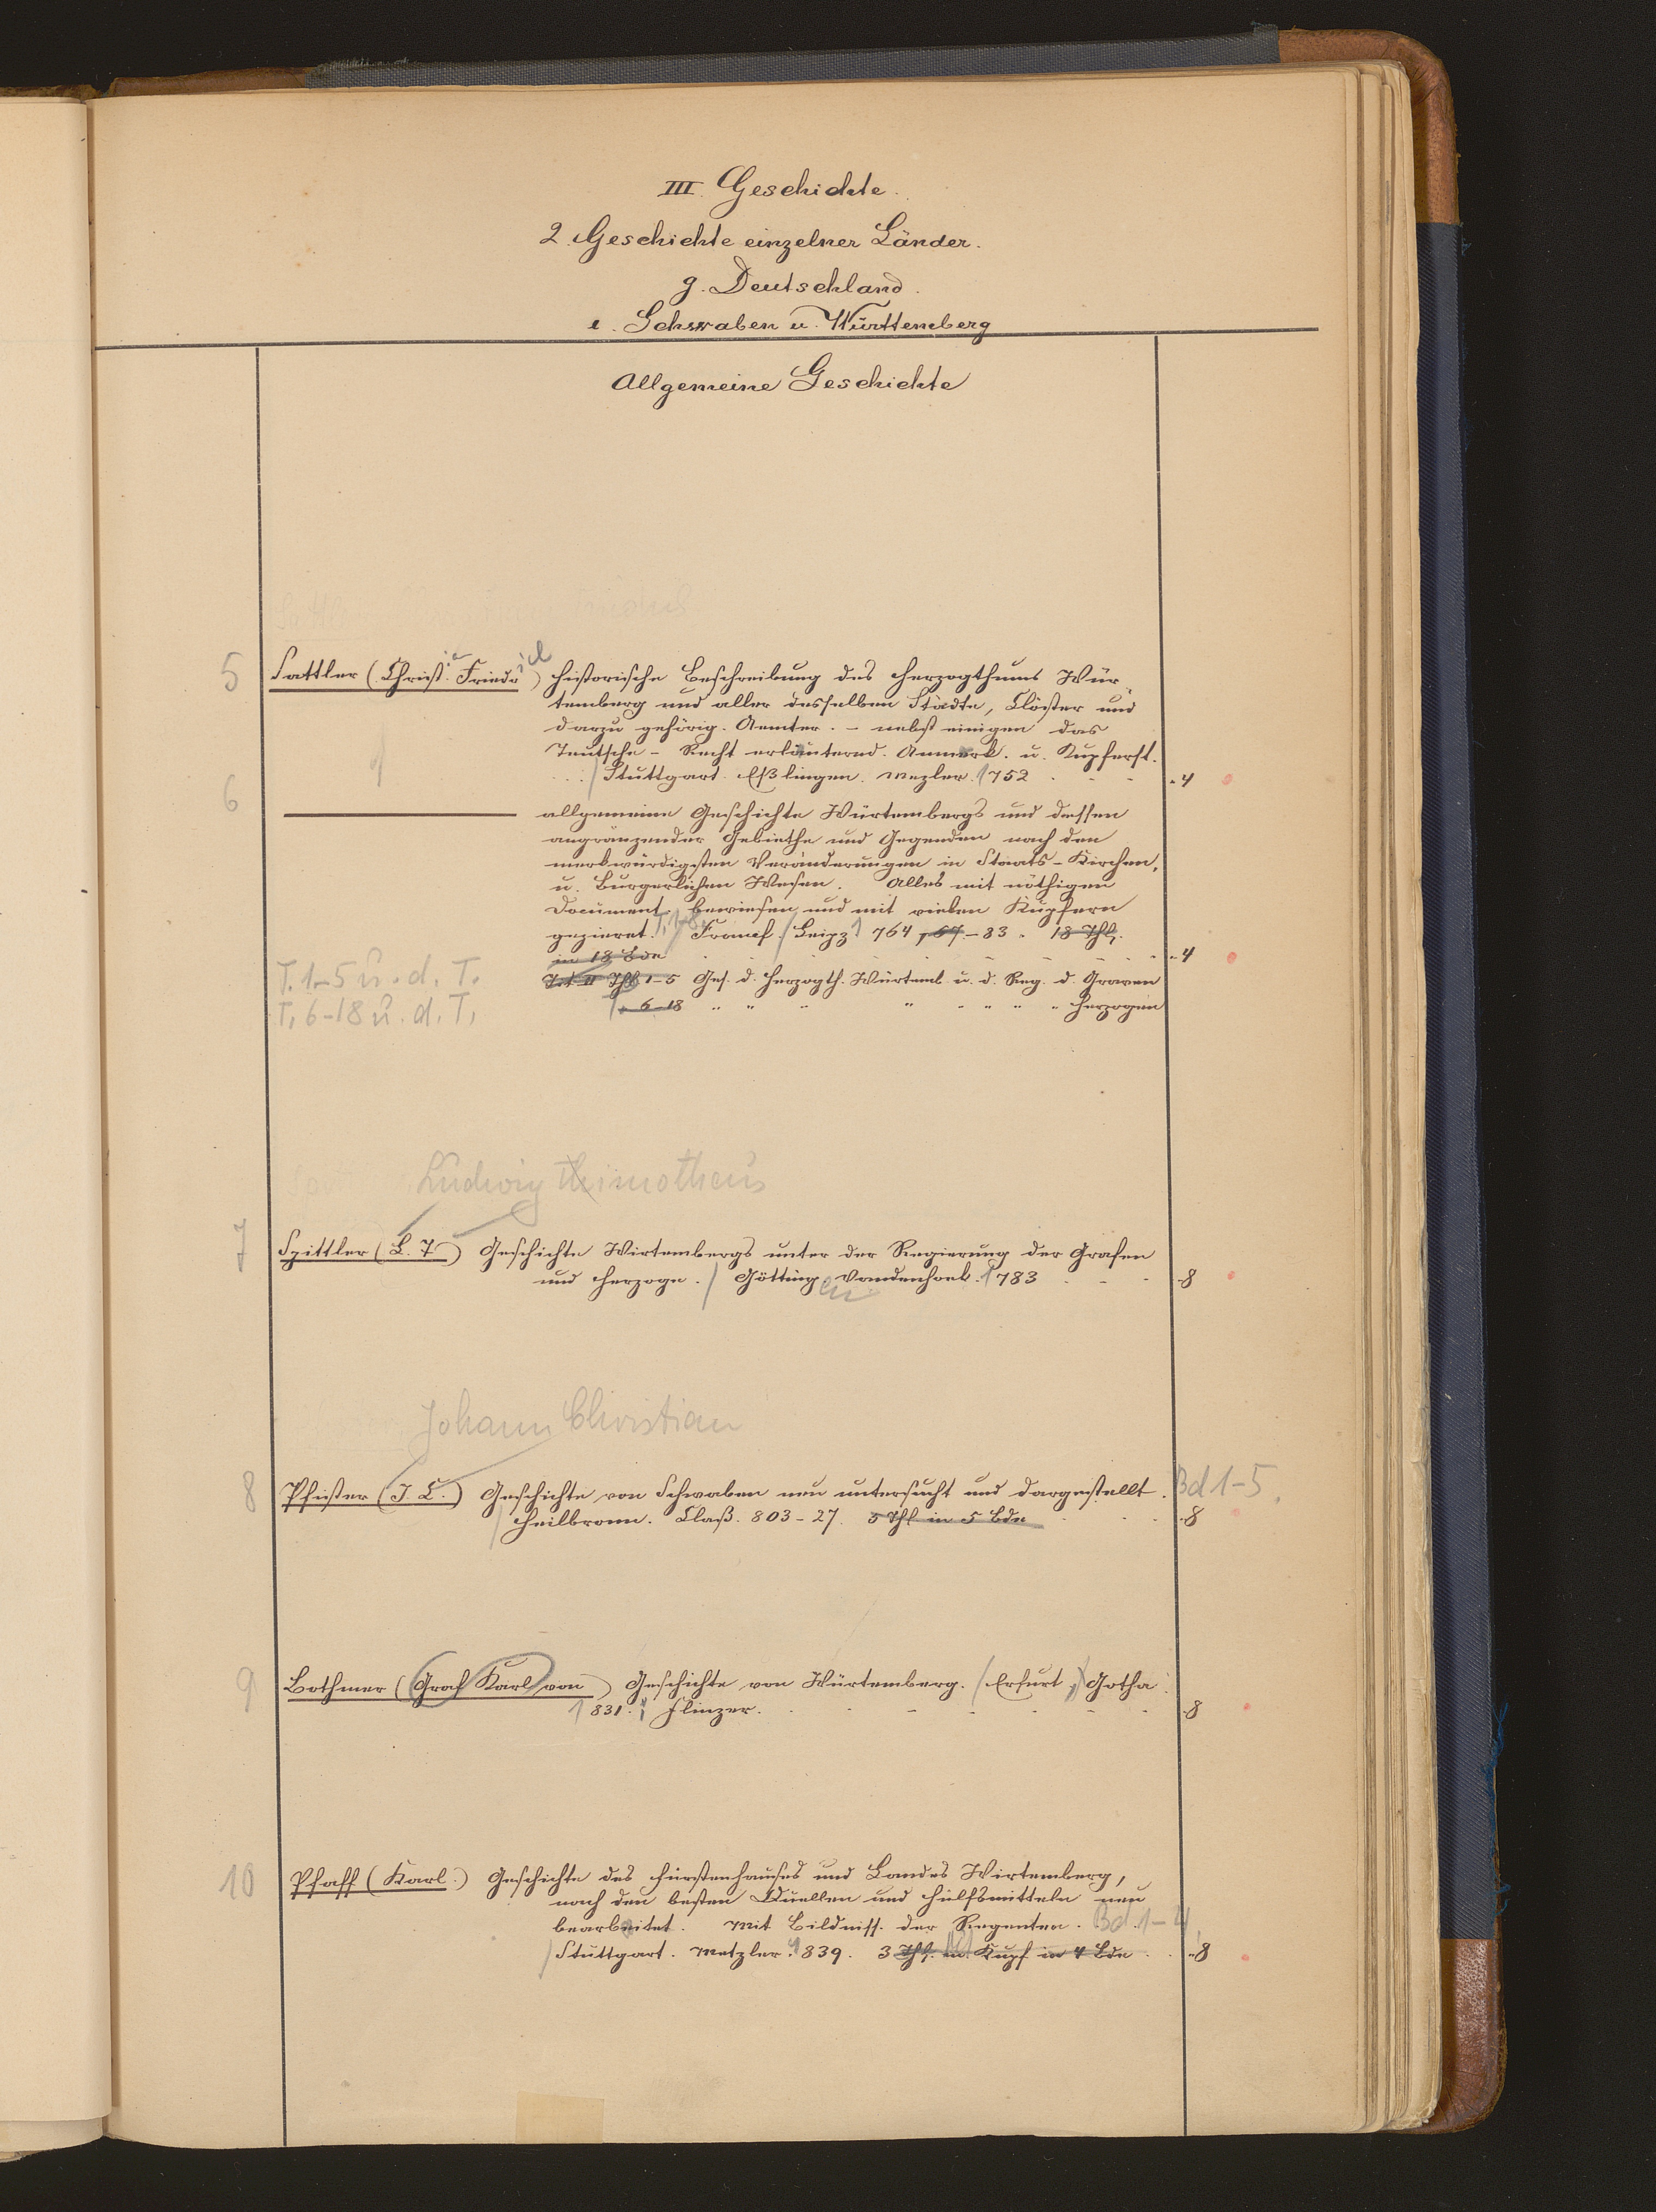 III. Geschichte.
2. Geschichte einzelner Länder.
g. Deutschland.
e. Schwaben u. Württemberg
Allgemeine Geschichte
5 Sattler (Christ. Friedr) historische Beschreibung des Herzogthums Wür
temberg und aller desselben Städte, Clöster und
darzu gehörig. Aemter. – nebst einigen das
Teutsche – Recht erläuternd. Anmerk. u. Kupferst.
Stuttgart. Eßlingen. Mezler. 1752 4
6 allgemeine Geschichte Würtembergs und dessen
angränzender Gebiethe und Gegenden nach den
merkwürdigsten Veränderungen in Staats-Kirchen,
u. Burgerlichen Wesen. Alles mit nöthigen
Document. bewiesen und mit vielen Kupfern
gezieret. T. 1-8. Francf. Leipz 1764, 67.–83. 18 Thl.
in 18 Bde 4
T. 1-5 u. d. T. Tit II Thl 1-5 Ges. d. Herzogth. Würtemb. u. d. Reg. d. Graven
T. 6-18 u. d. T. 6-18 " " " " " " " " Herzogen
Ludwig Thimotheus
7 Spittler (L. T.) Geschichte Wirtembergs unter der Regierung der Grafen
und Herzoge. Göttingen Vandenhoek. 1783 8
Johann Christian
8 Pfister (J. C.) Geschichte von Schwaben neu untersucht und dargestellt. Bd 1-5.
Heilbronn. Claß. 803–27. 5 Thl in 5 Bde 8
9 Bothmer (Graf Karl von) Geschichte von Würtemberg. Erfurt, Gotha.
1831. Flinzer. 8
10 Pfaff (Karl.) Geschichte des Fürstenhauses und Landes Wirtemberg,
nach den besten Quellen und Hülfsmitteln neu
bearbeitet. Mit Bildniss. der Regenten. Bd. 1-4
Stuttgart. Metzler. 1839. 3 Thl. m. Kupf in 4 Bde 8